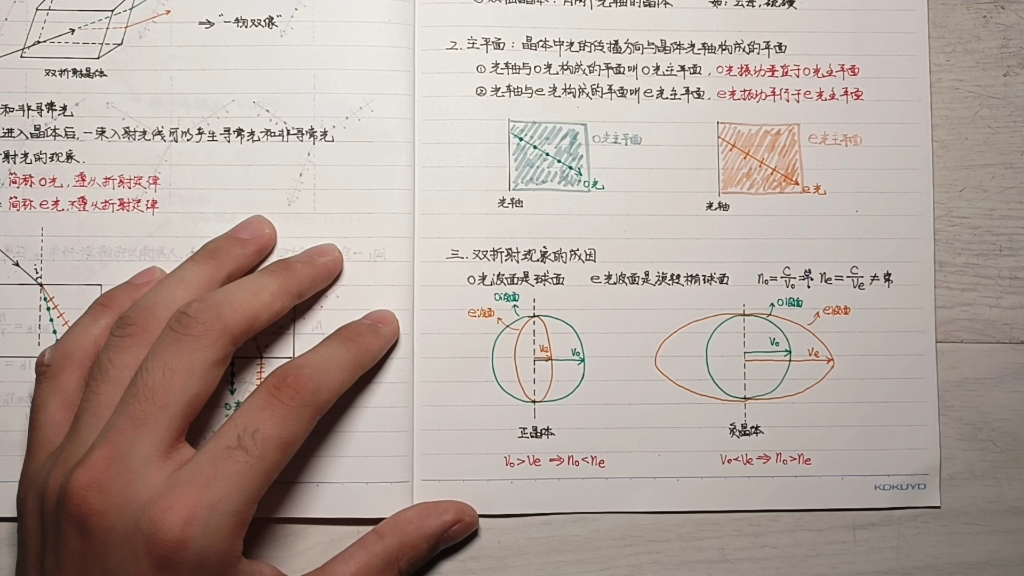 ⇒"一物双像"
双折射晶体
和非寻常光
进入晶体后,一束入射光线可以产生寻常光和非寻常光
射光的现象.
简称o光,遵从折射定律
简称e光,不遵从折射定律
2.主平面:晶体中光的传播方向与晶体光轴构成的平面
①光轴与o光构成的平面叫o光主平面,o光振动垂直于o光主平面
②光轴与e光构成的平面叫e光主平面,e光振动平行于e光主平面
o光主平面
o光
光轴
e光主平面
e光
光轴
三.双折射现象的成因
o光波面是球面 e光波面是旋转椭球面 n₀=C/V₀=常 nₑ=C/Vₑ≠常
o波面
e波面
Ve
Vo
正晶体
Vo>Ve ⇒ no<ne
o波面
e波面
Vo
Ve
负晶体
Vo<Ve ⇒ no>ne
KOKUYO